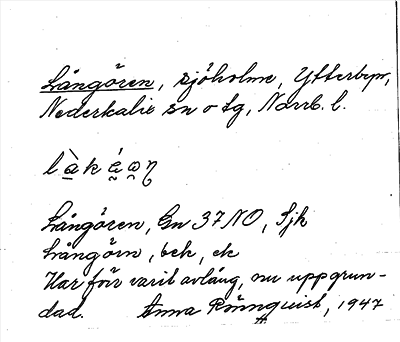 Långören, sjöholme, Ytterbyn,
Nederkalix sn o tg, Norrb. l.
Långören, Gn 37 NO, Sjk
Långörn, bek, ek
Har förr varit avlång, nu uppgrun-
dad. Anna Rönnquist, 1947